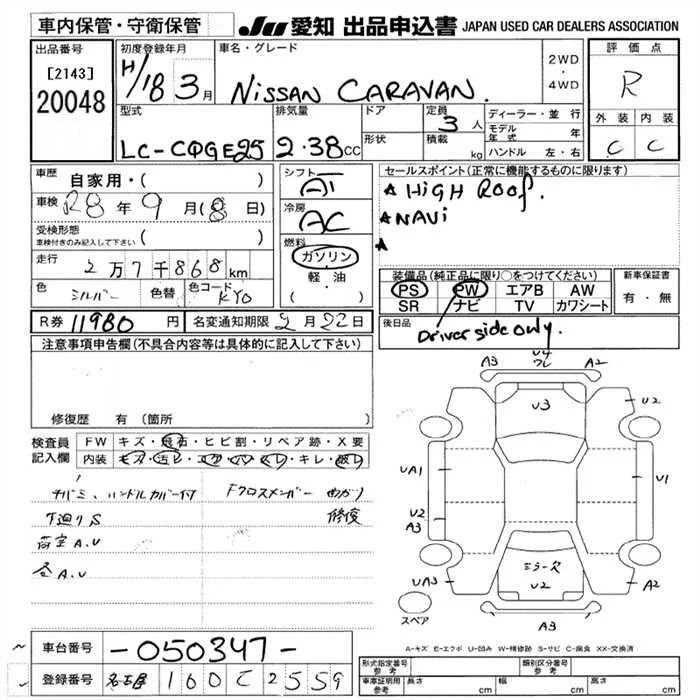 車内保管・守衛保管
JU 愛知 出品申込書 JAPAN USED CAR DEALERS ASSOCIATION
出品番号
[2143]
20048
初度登録年月
H/18 3月
車名・グレード
NISSAN CARAVAN.
2WD
・
4WD
評価点
R
外装 内装
C C
型式
LC-CQGE25
排気量
2.38cc
ドア
形状
定員
3人
積載
kg
ディーラー・並行
モデル年式 年
ハンドル 左・右
車歴
自家用・( )
車検
R8年9月(8日)
受検形態
車検付きのみ記入して下さい
( )
走行
2万7千868km
色
シルバー
色替
色コード
KY0
シフト
AT
冷房
AC
燃料
ガソリン
・
軽・油
セールスポイント(正常に機能するものに限ります)
★HiGH Roof.
★NAVi
★
装備品(純正品に限り○をつけてください)
PS PW エアB AW
SR ナビ TV カワシート
新車保証書
有・無
後日品
Driver side only.
R券 11980円
名変通知期限 2月22日
注意事項申告欄(不具合内容等は具体的に記入して下さい)
修復歴 有(箇所 )
検査員
記入欄
FW キズ・飛石・ヒビ割・リペア跡・X要
内装 キズ・汚レ・コゲ・ハン・スレ・キレ・破レ
ハンドルカバー付
Fクロスメンバー 曲がり
修復
下廻りS
荷室A.U
全A.U
A3 U4 ワレ A2
U3 U2
UA1 U1
U2
A3
ミラーズ
U2
UA3 A2
A3
スペア
A-キズ E-エクボ U-凹み W-補修跡 S-サビ C-腐食 XX-交換済
車台番号
-050347-
登録番号
名古屋 100 て 2559
型式指定番号
参考
類別区分番号
参考
車庫証明用
参考
長さ cm 幅 cm 高さ cm